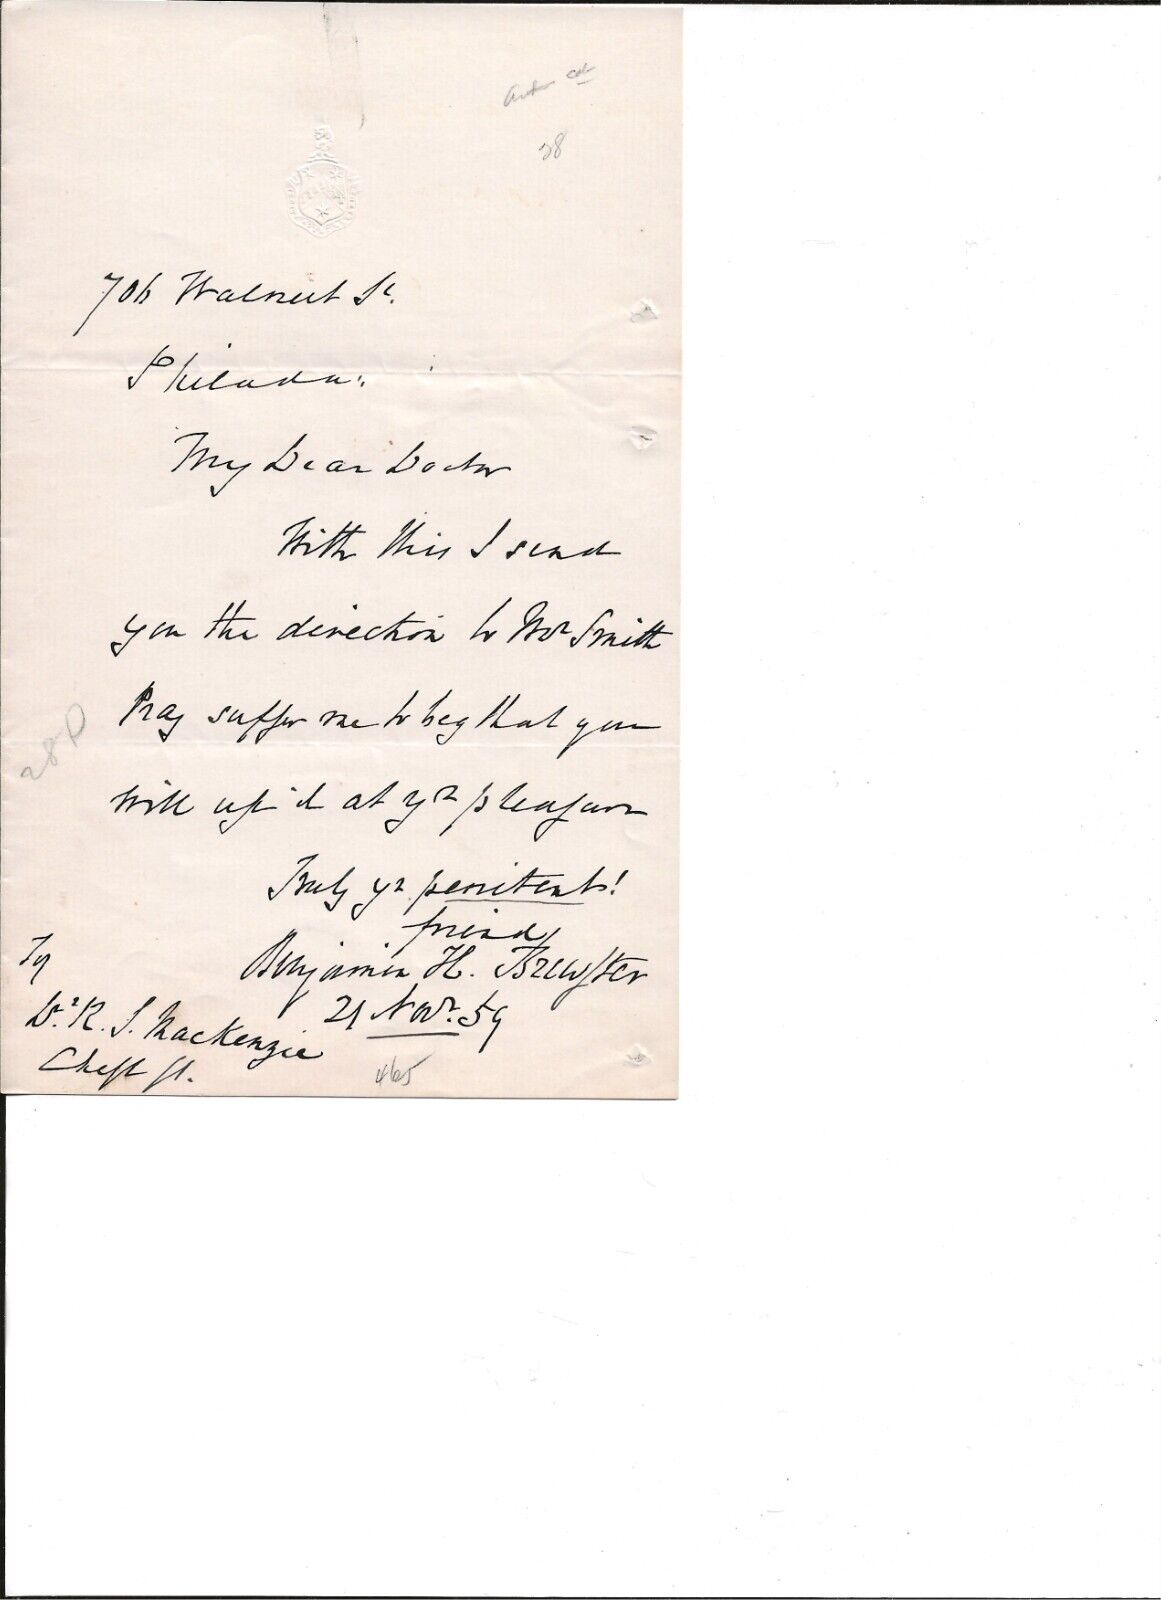 28
706 Walnut St.
Philada:
My Dear Doctor
With this I send
you the direction to Mr Smith
Pray suffer me to beg that you
will use it at yr pleasure
Truly yr penitent!
friend
Benjamin H. Brewster
21 Novr. 59
To
Dr. R. S. MacKenzie
Chest St.
28 D
465